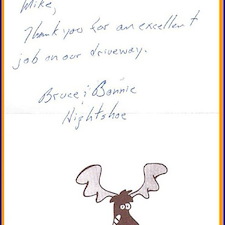 Mike,
Thank you for an excellent
job on our driveway.
Bruce & Bonnie
Hightshoe